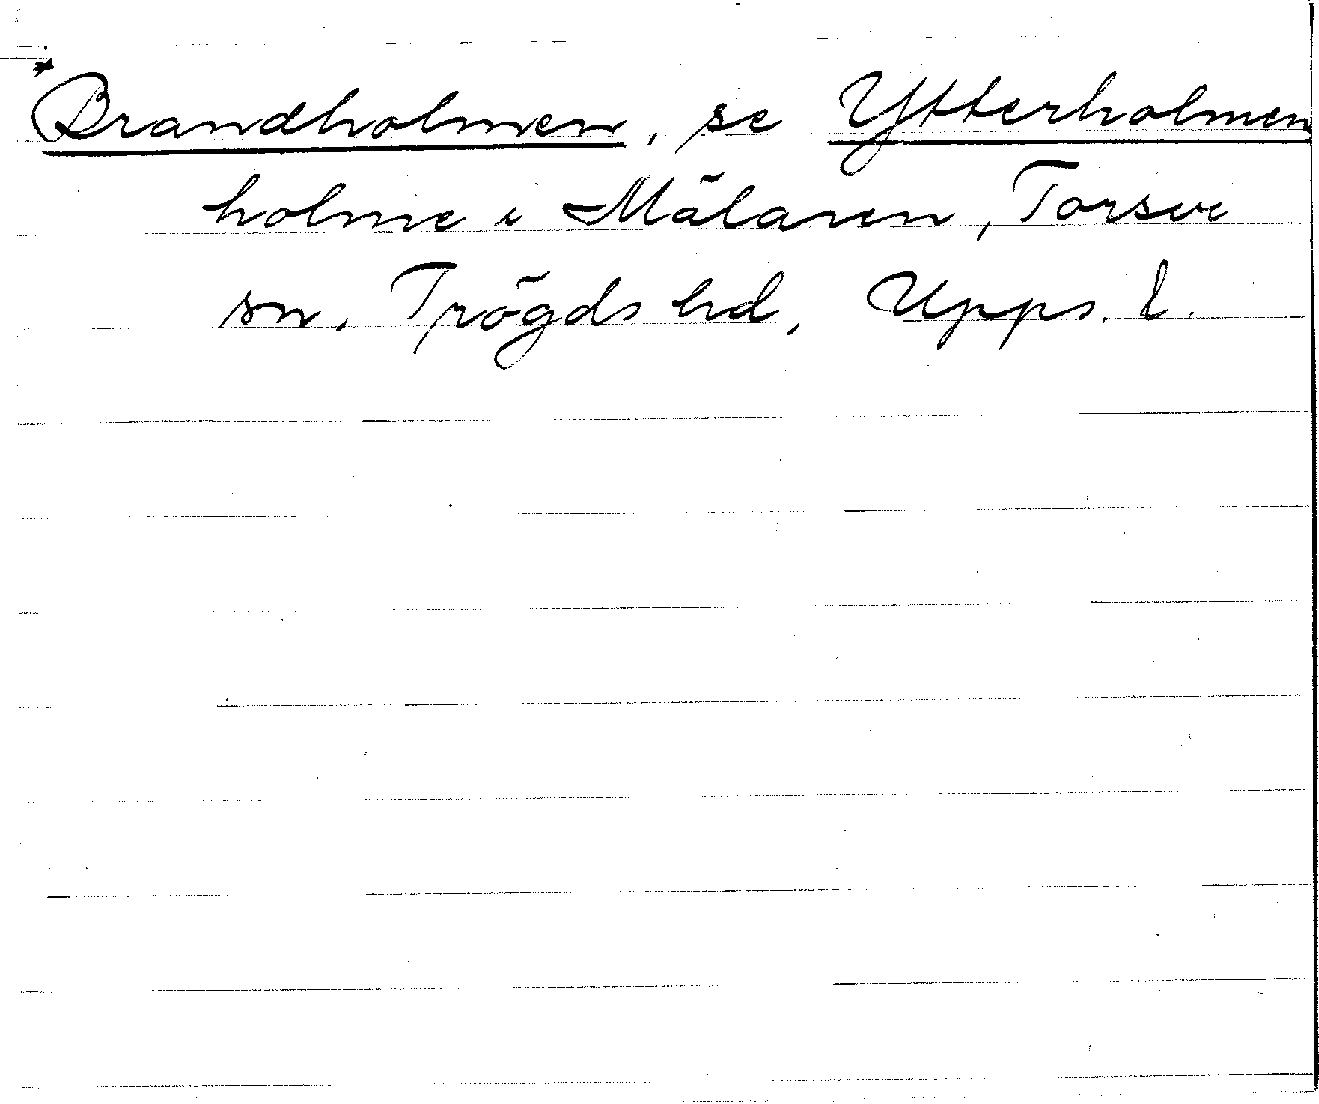 *Brandholmen, se Ytterholmen
holme i Mälaren, Torsvi
sn. Trögds hd, Upps. l.